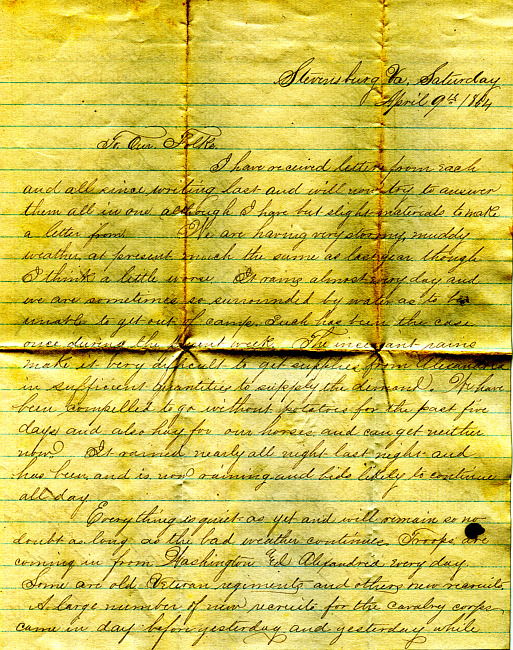 Stevensburg Va, Saturday
April 9th 1864
To Our Folks.
I have received letters from each
and all since writing last and will now try to answer
them all in one although I have but slight materials to make
a letter from. We are having very stormy, muddy
weather at present much the same as last year though
I think a little worse. It rains almost every day and
we are sometimes so surrounded by water as to be
unable to get out of camp. Such has been the case
once during the present week. The incessant rains
make it very difficult to get supplies from Alexandria
in sufficient quantities to supply the demand. We have
been compelled to go without potatoes for the past five
days and also hay for our horses, and can get neither
now. It rained nearly all night last night and
has been and is now raining and bids likely to continue
all day.
Everything is quiet as yet and will remain so no
doubt as long as the bad weather continues. Troops are
coming in from Washington & Alexandria every day
Some are old Veteran regiments and others new recruits.
A large number of new recruits for the cavalry corps
came in day before yesterday and yesterday while